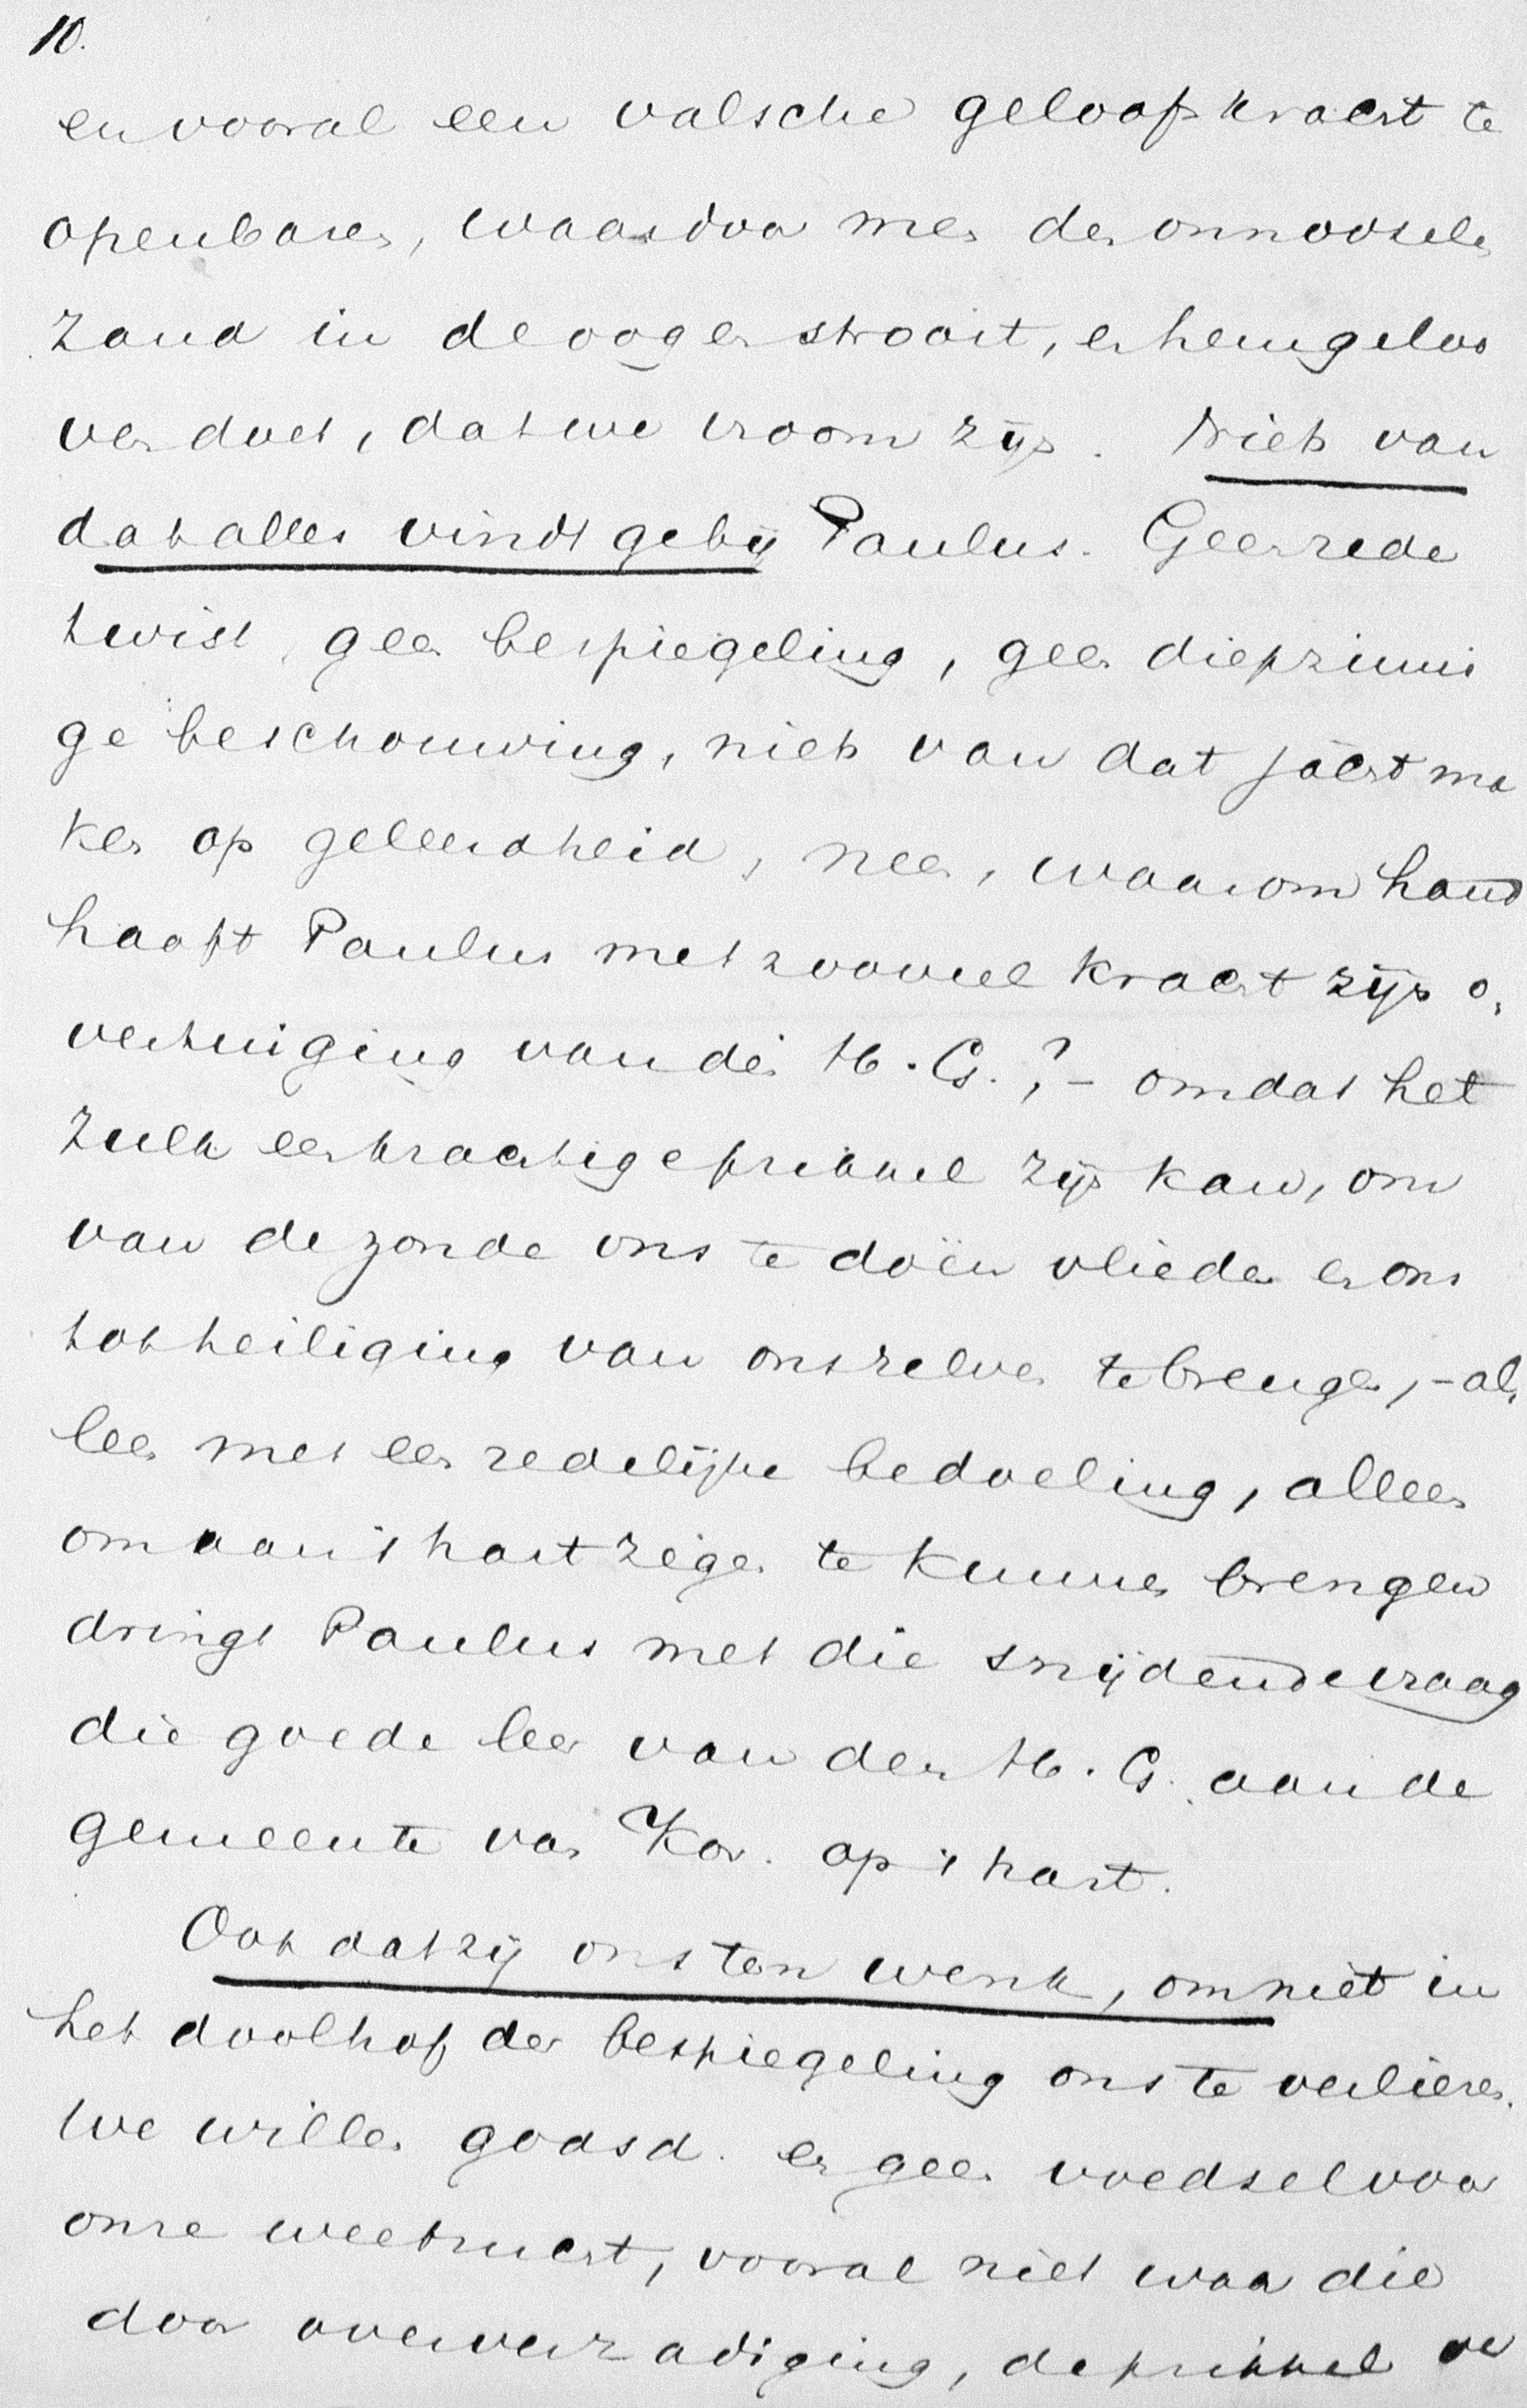 10.
en vooral een valsche geloofskracht te
openbaren, waardoor men den onnoozelen
zand in de oogen strooit, en hem geloo
ven doet, dat we vroom zijn. Niets van
dat alles vindt ge bij Paulus. Geen rede
twist, geen bespiegeling, geen diepzinni
ge beschouwing, niets van dat jacht ma
ken op geleerdheid, neen, waarom hand
haaft Paulus met zooveel kracht zijn o,
vertuiging van den H. G.? – omdat het
zulk een krachtige prikkel zijn kan, om
van de zonde ons te doen vlieden en ons
tot heiliging van onszelven te brengen, – al,
leen met een zedelijke bedoeling, alleen
om aan 't hart zegen te kunnen brengen
dringt Paulus met die snijdende vraag
die goede leer van den H. G. aan de
gemeente van Kor. op 't hart.
Ook dat zij ons ten wenk, om niet in
het doolhof der bespiegeling ons te verliezen.
We willen godsd. en geen voedsel voor
onze weetzucht, vooral niet waar die
door oververzadiging, de prikkel ve